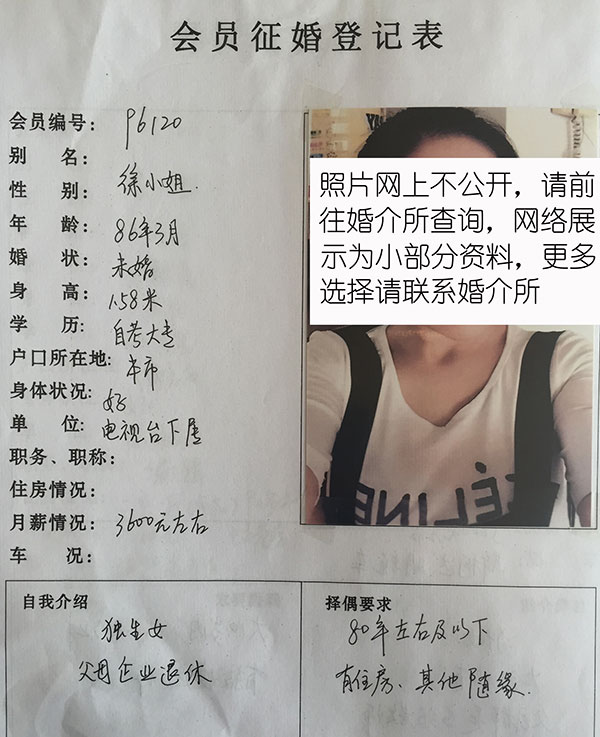 会员征婚登记表
会员编号: P6120
别 名:
性 别: 徐小姐.
年 龄: 86年3月
婚 状: 未婚
身 高: 1.58米
学 历: 自考大专
户口所在地: 本市
身体状况: 好
单 位: 电视台下属
职务、职称:
住房情况:
月薪情况: 3600元左右
车 况:
照片网上不公开，请前
往婚介所查询，网络展
示为小部分资料，更多
选择请联系婚介所
CÉLINE
自我介绍
独生女
父母企业退休
择偶要求
80年左右及以下
有住房、其他随缘.